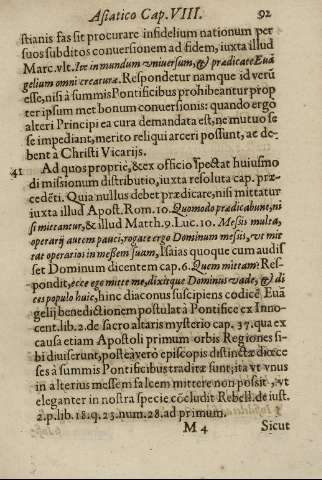 Asiatico Cap. VIII. 92
stianis fas sit procurare infidelium nationum per
suos subditos conversionem ad fidem, iuxta illud
Marc. vlt. Ite in mundum vniuersum, & prædicate Euā
gelium omni creaturæ. Respondetur namque id verū
esse, nisi à summis Pontificibus prohibeantur prop
ter ipsum met bonum conuersionis: quando ergò
alteri Principi ea cura demandata est, ne mutuo se
se impediant, merito reliqui arceri possunt, ac de-
bent à Christi Vicarijs.
41 Ad quos propriè, & ex officio spectat huiusmo
di missionum distributio, iuxta resoluta cap. præ-
cedēti. Quia nullus debet prædicare, nisi mittatur
iuxta illud Apost. Rom. 10. Quomodo prædicabunt, ni
si mittantur, & illud Matth. 9. Luc. 10. Messis multa,
operarij autem pauci, rogate ergo Dominum messis, vt mit
tat operarios in messem suam, Isaias quoque cum audis
set Dominum dicentem cap. 6. Quem mittam? Res-
pondit, ecce ego mitte me, dixitque Dominus vade, & di
ces populo huic, hinc diaconus suscipiens codicē Euā
gelij benedictionem postulat à Pontifice ex Inno-
cent. lib. 2. de sacro altaris mysterio cap. 37. qua ex
causa etiam Apostoli primum orbis Regiones si-
bi diuiserunt, posteà verò episcopis distinctæ diœce
ses à summis Pontificibus traditæ sunt; ita vt vnus
in alterius messem falcem mittere non possit, vt
eleganter in nostra specie cōcludit Rebell. de iust.
2. p. lib. 18. q. 23. num. 28. ad primum.
M 4 Sicut